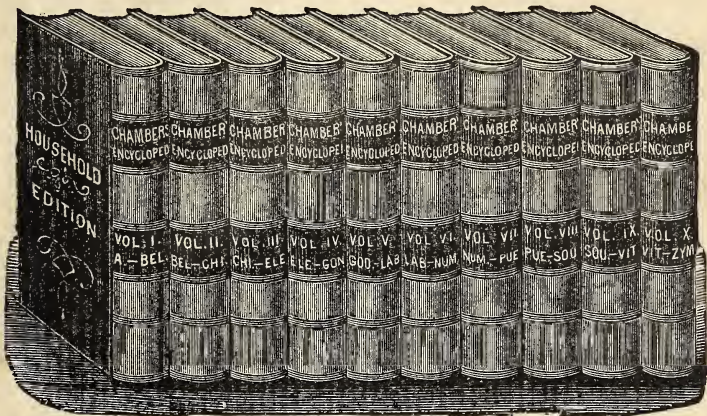 HOUSEHOLD
EDITION
CHAMBER'
ENCYCLOPED
VOL. I.
A.–BEL
CHAMBER'
ENCYCLOPED
VOL. II.
BEL–CHI
CHAMBER'
ENCYCLOPED
VOL. III.
CHI–ELE
CHAMBER'
ENCYCLOPED
VOL. IV.
ELE–GON
CHAMBER'
ENCYCLOPED
VOL. V.
GOO–LAB
CHAMBER'
ENCYCLOPED
VOL. VI.
LAB–NUM
CHAMBER'
ENCYCLOPED
VOL. VII
NUM.–PUE
CHAMBER'
ENCYCLOPED
VOL. VIII
PUE–SOU
CHAMBER'
ENCYCLOPED
VOL. IX.
SOU–VIT
CHAMBE
ENCYCLOPE
VOL. X.
VIT–ZYM